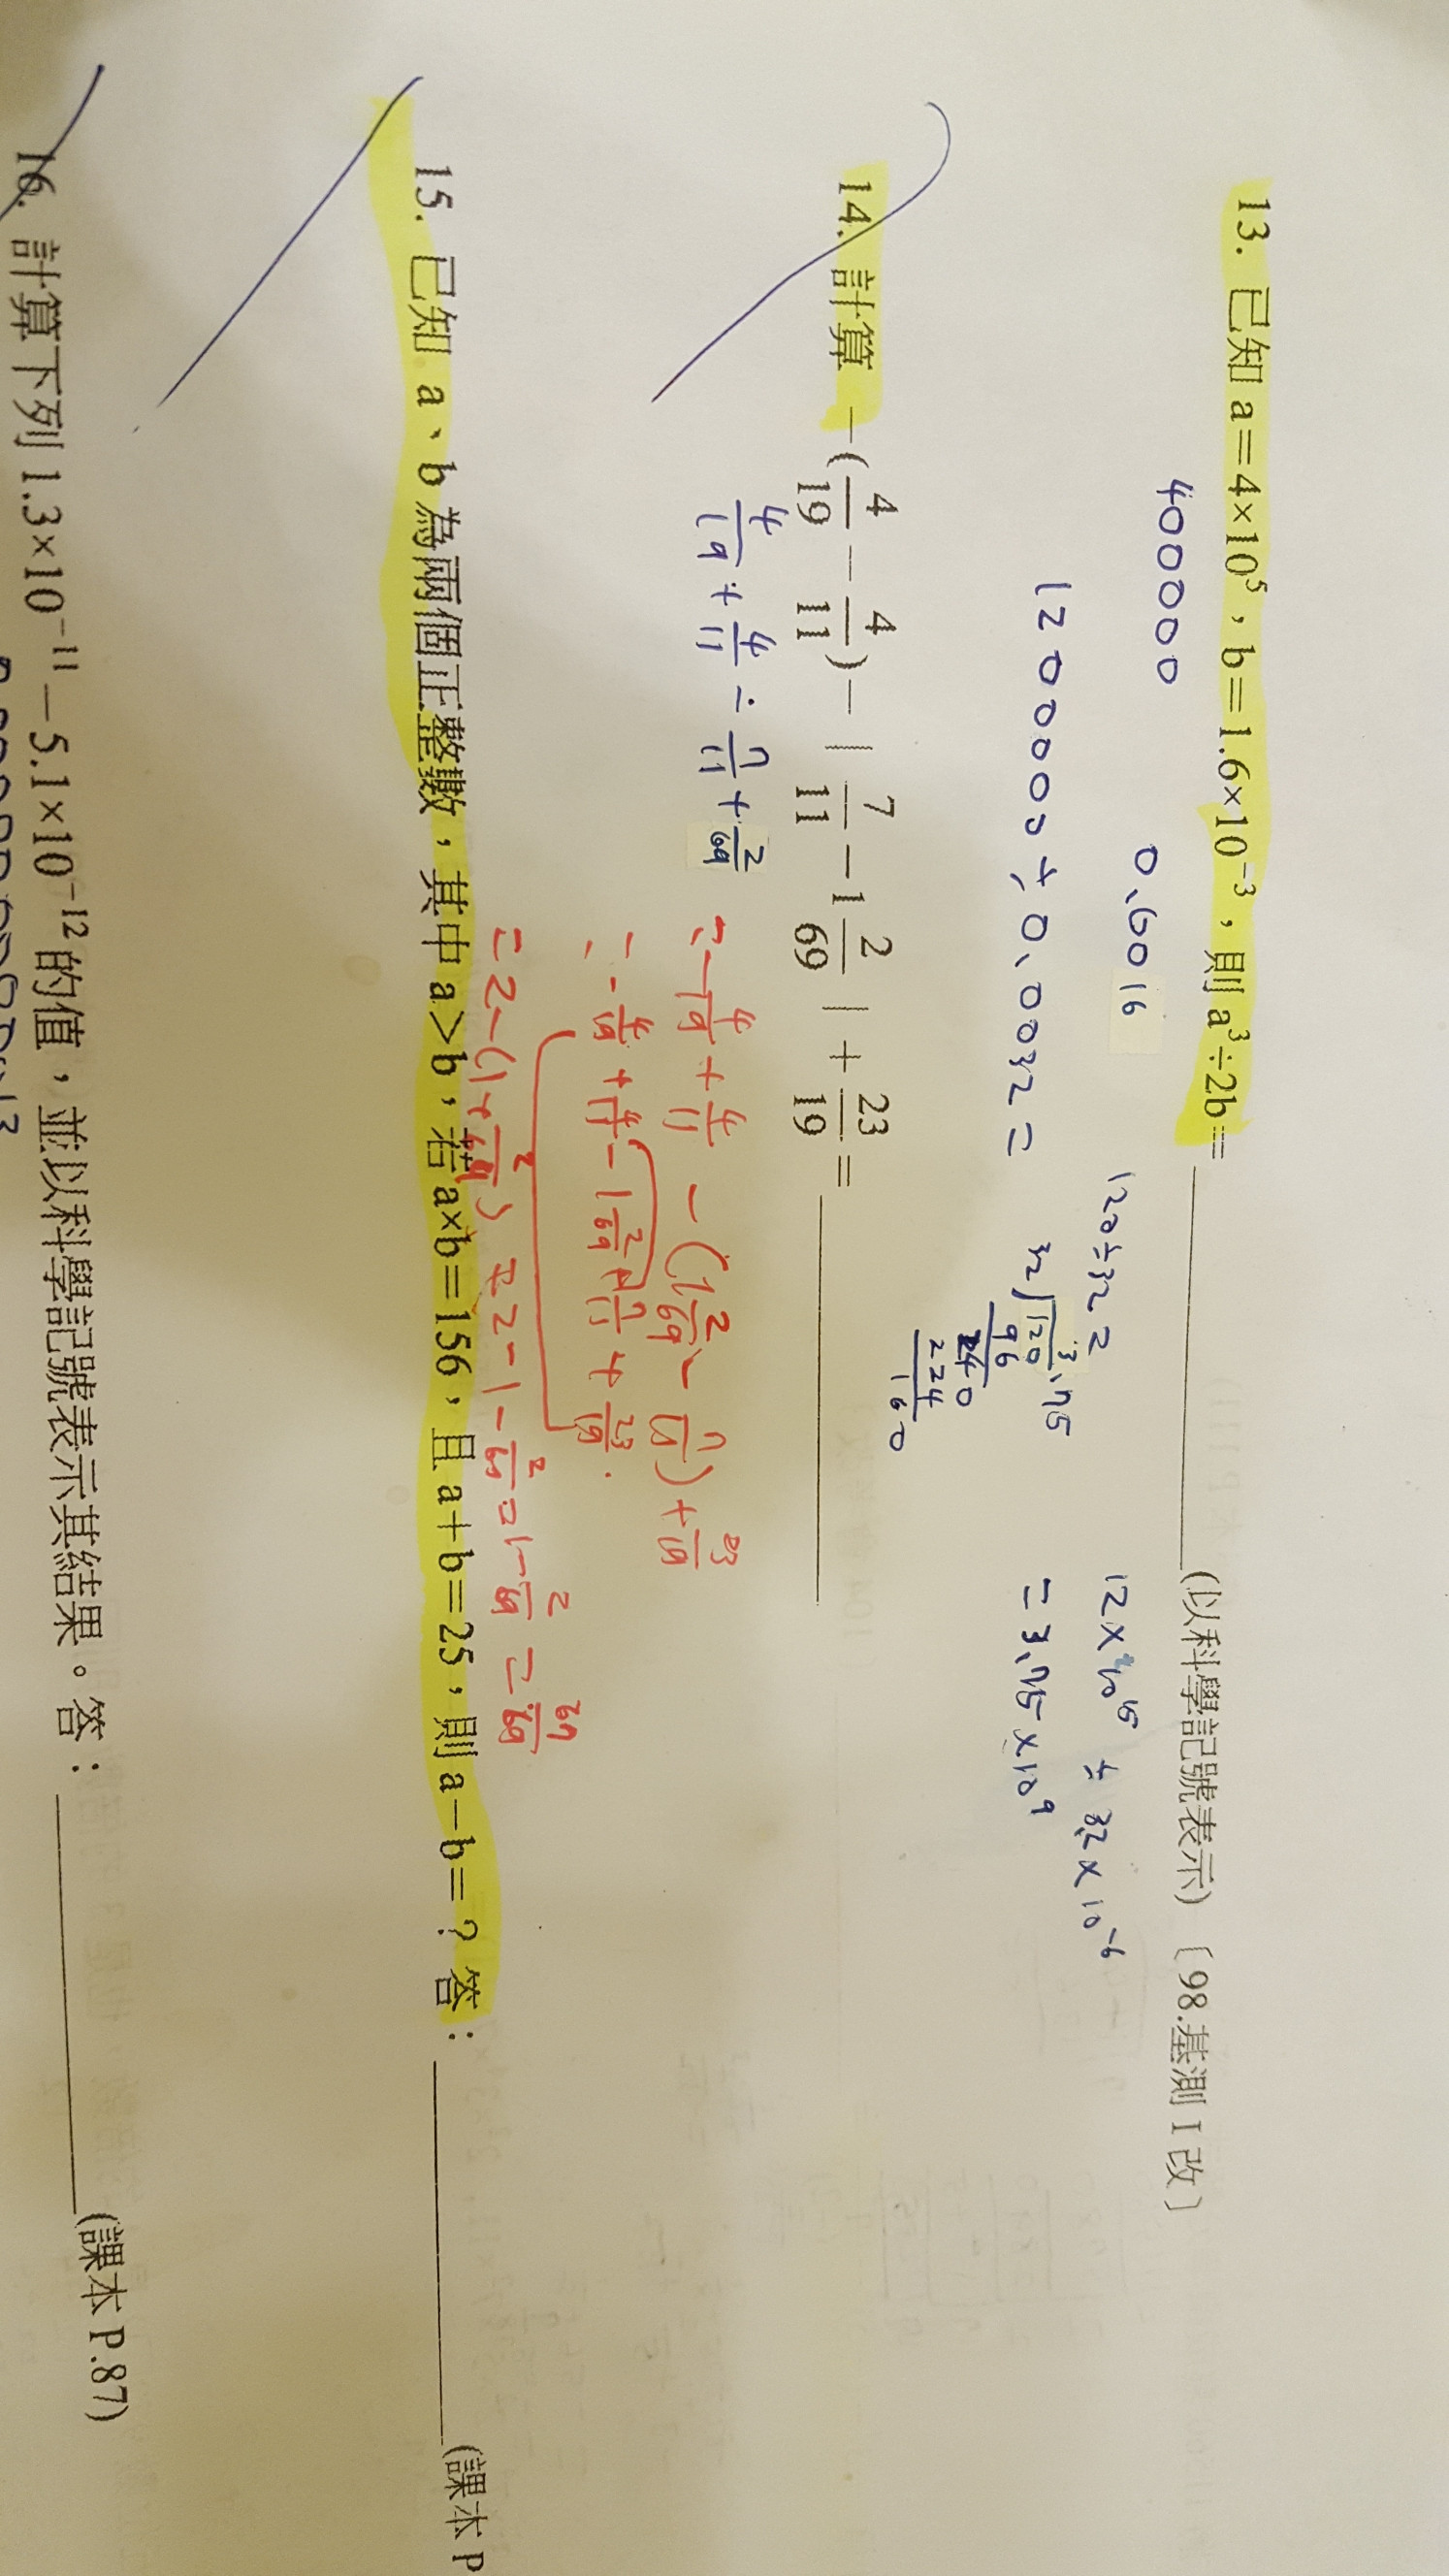 13. 已知 a=4×10⁵，b=1.6×10⁻³，則 a³÷2b= ________ (以科學記號表示)〔98.基測 I 改〕
400000 0.0016 120÷32= 12×10⁵ ÷ 3.2×10⁻⁶
1200000÷0.0032= 32 120 3.75 = 3.75×10⁹
96
240
224
160
14. 計算 －(4/19 － 4/11)－｜7/11 －1 2/69｜+ 23/19 = ________
4/19 + 4/11 - 7/11 + 2/69 = -4/19 + 4/11 - (1 2/69 - 7/11) + 23/19
= -4/19 + 4/11 - 1 2/69 + 7/11 + 23/19
= 2-(1+2/69) = 2-1-2/69 = 1-2/69 = 67/69
15. 已知 a、b 為兩個正整數，其中 a＞b，若 a×b=156，且 a+b=25，則 a－b=？答：________(課本 P
16. 計算下列 1.3×10⁻¹¹－5.1×10⁻¹²的值，並以科學記號表示其結果。答：________(課本 P.87)